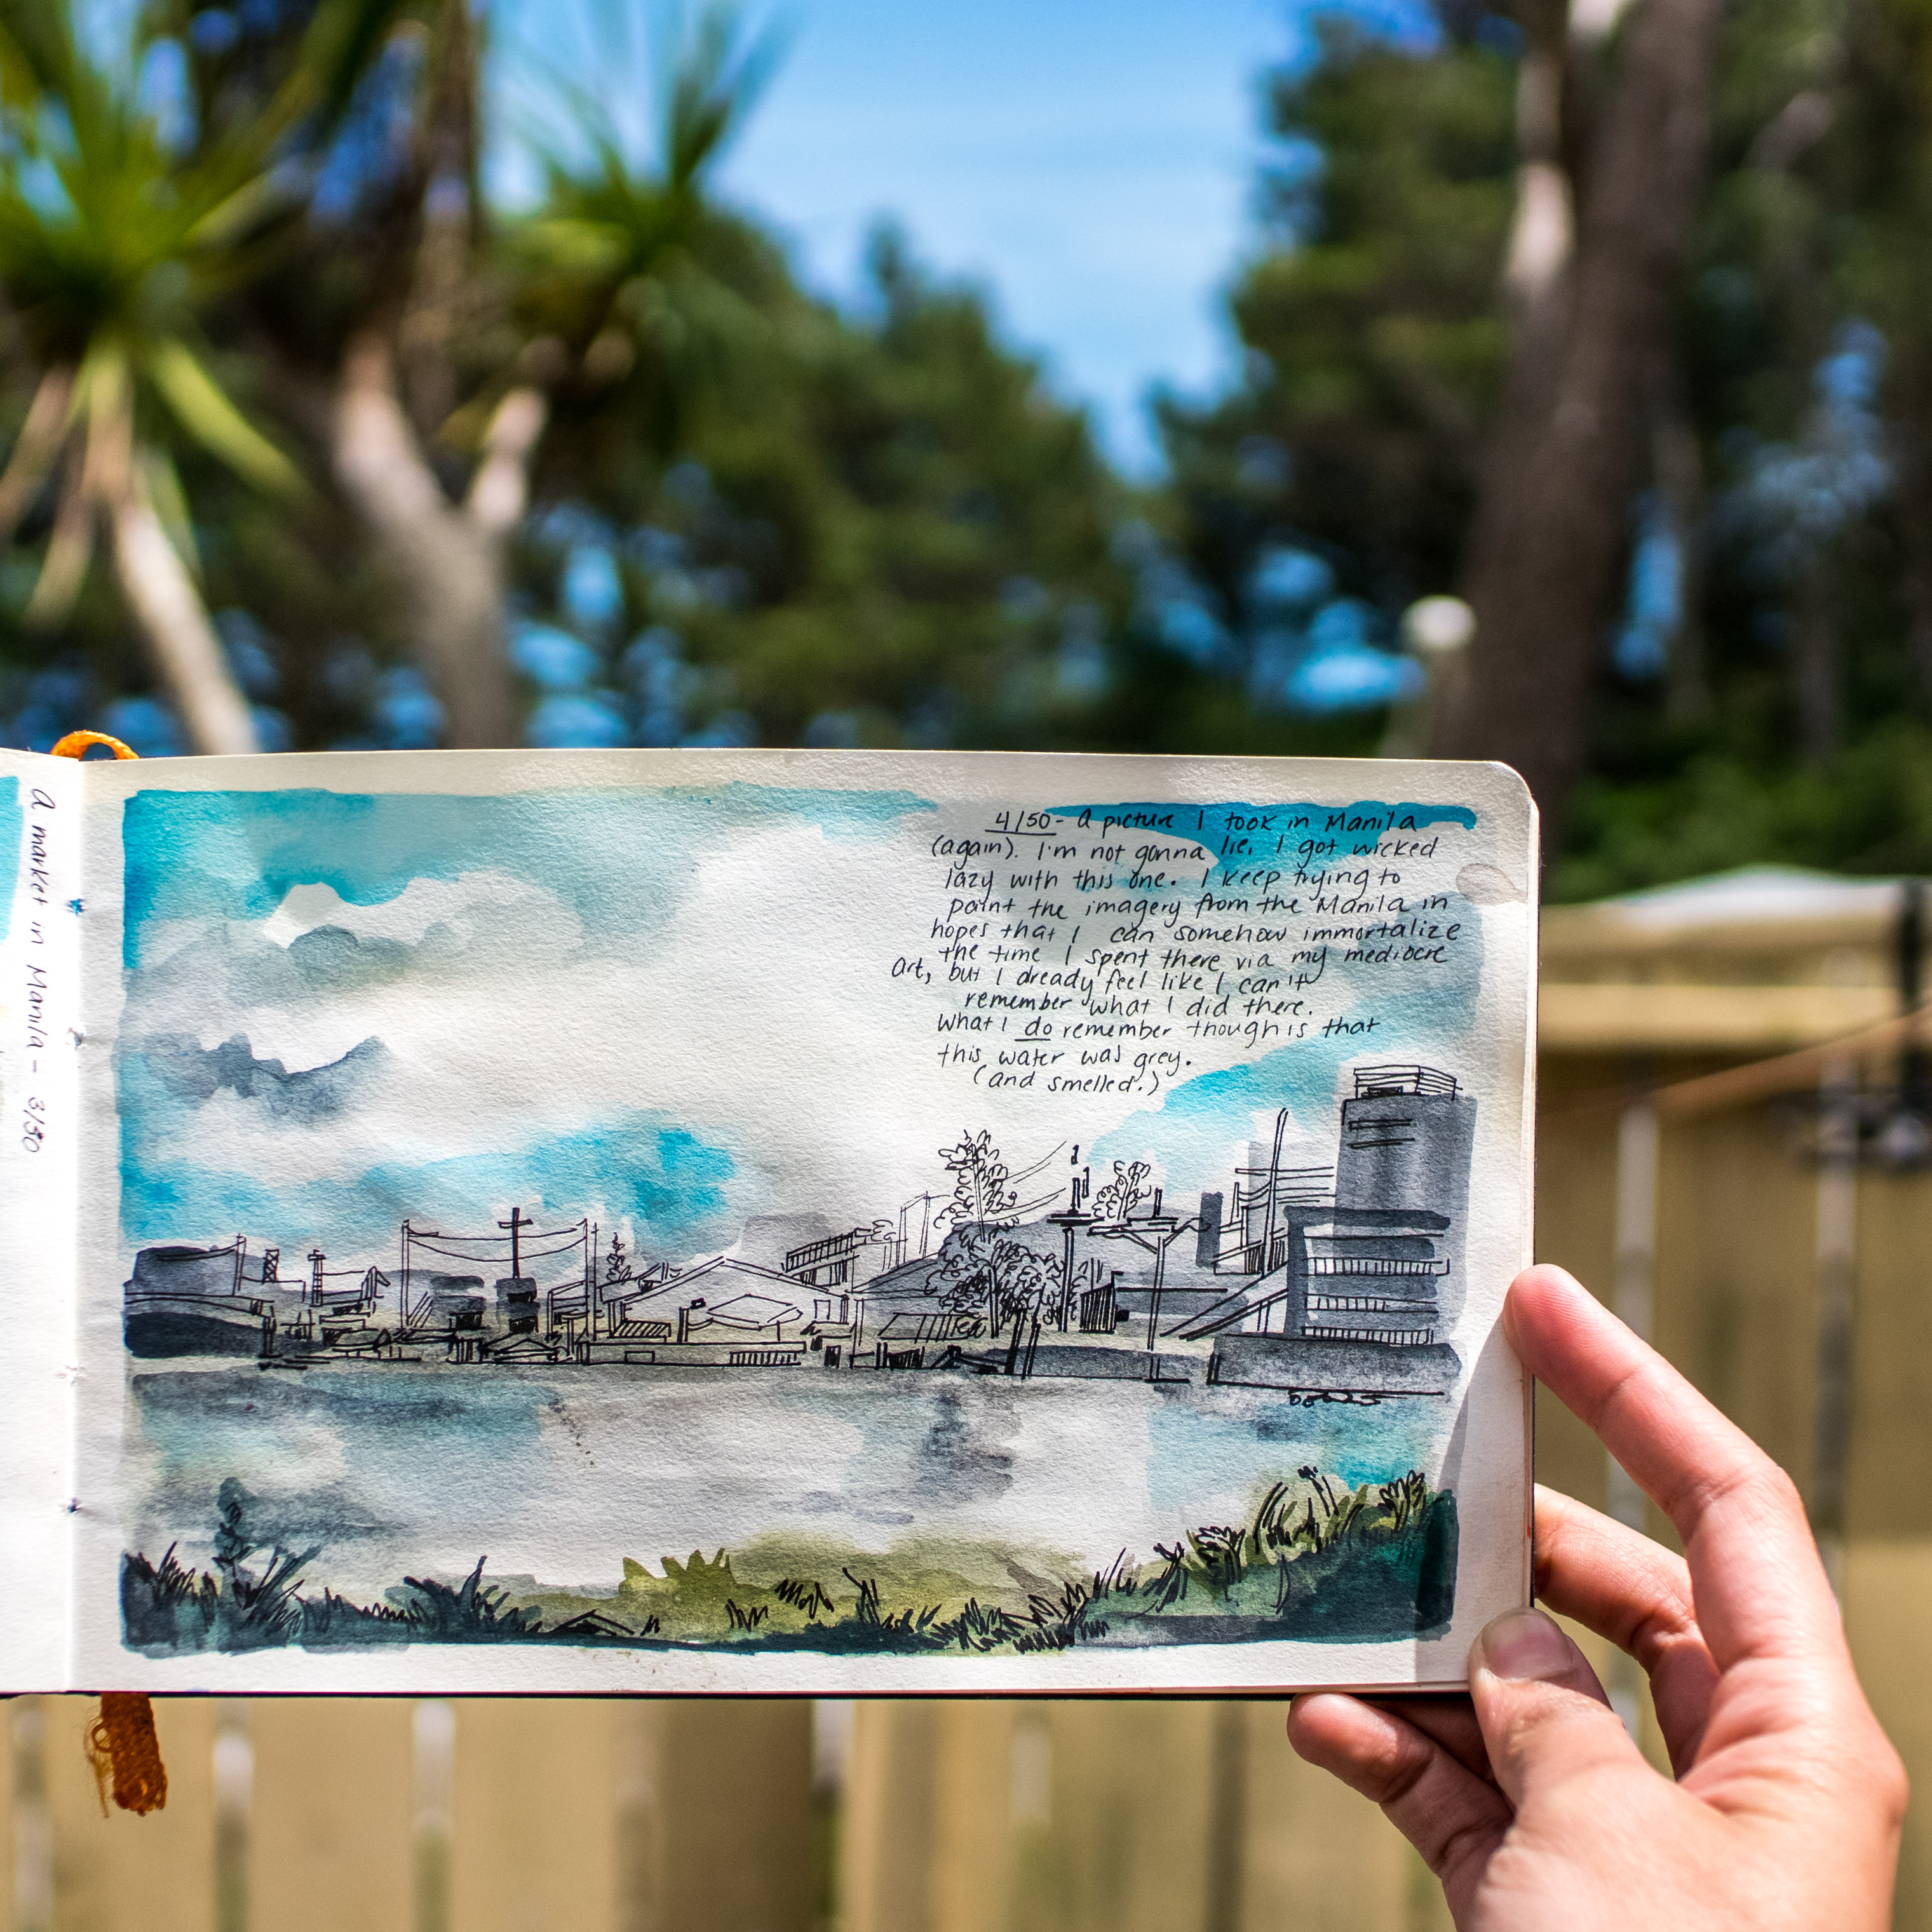 a market in Manila - 3/50
4/50 - a picture I took in Manila
(again). I'm not gonna lie, I got wicked
lazy with this one. I keep trying to
paint the imagery from the Manila in
hopes that I can somehow immortalize
the time I spent there via my mediocre
art, but I already feel like I can't
remember what I did there.
What I do remember though is that
this water was grey.
(and smelled.)